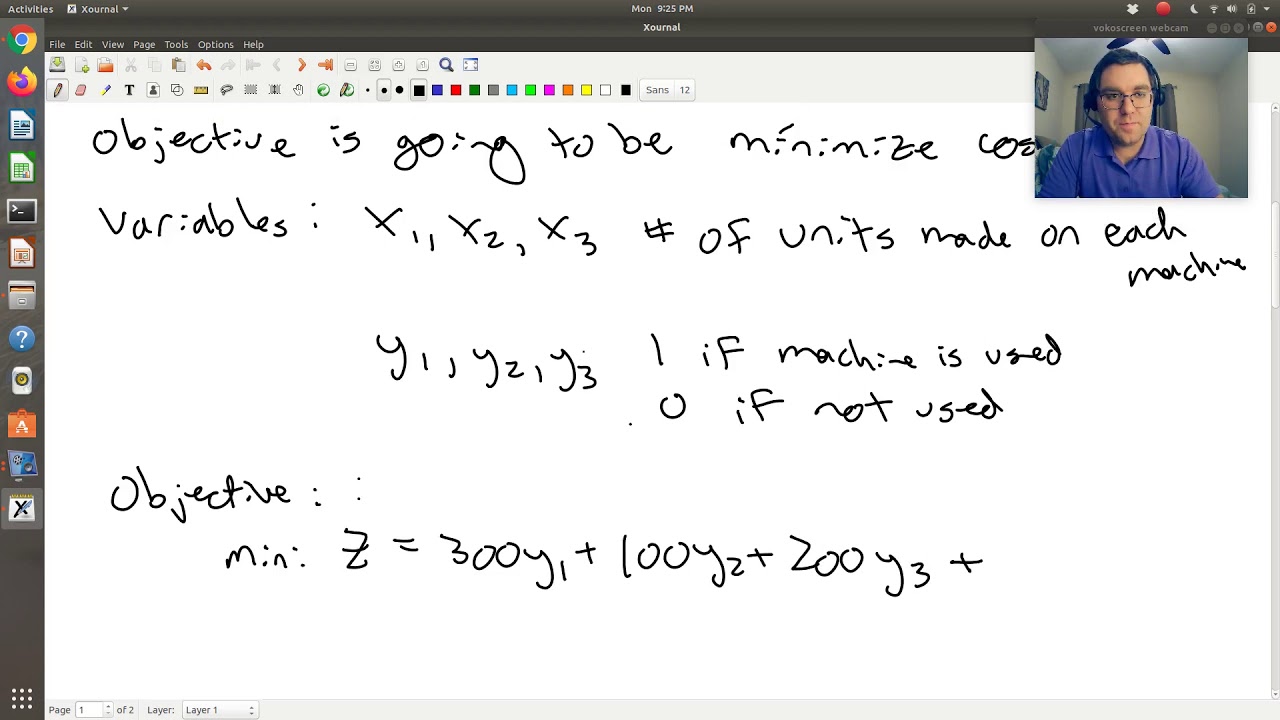 Activities Xournal Mon 9:25 PM
Xournal
vokoscreen webcam
File Edit View Page Tools Options Help
Sans 12
Objective is going to be minimize cos
Variables: x1, x2, x3 # of units made on each
machine
y1, y2, y3 1 if machine is used
0 if not used
Objective:
min: Z = 300y1 + 100y2 + 200y3 +
Page 1 of 2 Layer: Layer 1